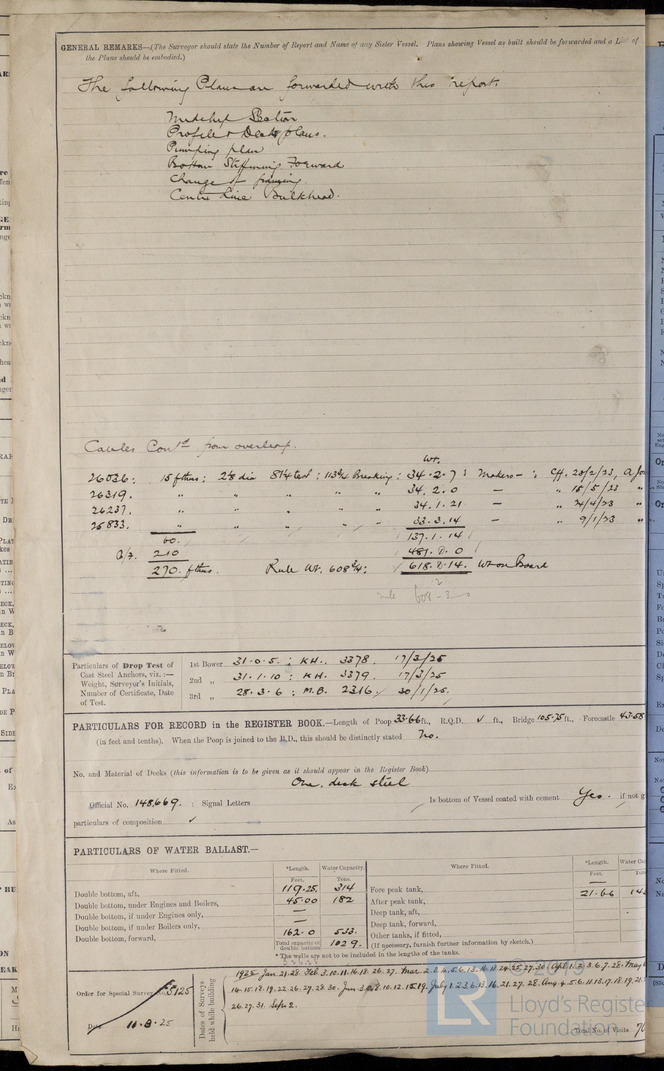 GENERAL REMARKS—(The Surveyor should state the Number of Report and Name of any Sister Vessel. Plans showing Vessel as built should be forwarded and a List of
the Plans should be embodied.)
The following Plans are forwarded with this report.
Midship Section
Profile & Decks plans.
Pumping plan
Bottom Stiffening Forward
Change of framing
Centre Line Bulkhead.
Cables Contd from overleaf.
Wt.
26036: 15 fthms: 2⅛ dia 81¼ test: 113¾ Breaking: 34.2.7: Makers— : Cff. 20/2/23,
26319. " " " " " 34.2.0 — " 15/5/23 "
26237. " " " " " 34.1.21 — " 24/4/23 "
25833. " " " " " 33.3.14 — " 9/1/23 "
60. 137.1.14
210 481. 0
270. fthms. Rule Wt. 608¾: 618. .14. Wt on Board
rule 608-3-0
Particulars of Drop Test of
Cast Steel Anchors, viz.:—
Weight, Surveyor's Initials,
Number of Certificate, Date
of Test.
1st Bower 31.0.5.: K.H. 3378. 17/3/25
2nd " 31.1.10: K.H. 3379. 17/3/25
3rd " 28.3.6: M.B. 2316. 30/1/25.
PARTICULARS FOR RECORD in the REGISTER BOOK.—Length of Poop 33.66 ft., R.Q.D. ✓ ft., Bridge 105.75 ft., Forecastle 43.58
(in feet and tenths). When the Poop is joined to the B.D., this should be distinctly stated No.
No. and Material of Decks (this information is to be given as it should appear in the Register Book)
One, deck steel
Official No. 148,669. : Signal Letters Is bottom of Vessel coated with cement Yes. if not g
particulars of composition ✓
PARTICULARS OF WATER BALLAST.—
Where Fitted. *Length. Water Capacity. Where Fitted. *Length. Water Ca
Feet. Tons. Feet.
Double bottom, aft, 119.25 314 Fore peak tank, —
Double bottom, under Engines and Boilers, 45.00 182 After peak tank, 21.66 14
Double bottom, if under Engines only, — Deep tank, aft,
Double bottom, if under Boilers only, — Deep tank, forward,
Double bottom, forward, 162.0 533. Other tanks, if fitted,
Total capacity of double bottom 1029. (If necessary, furnish further information by sketch.)
*The wells are not to be included in the lengths of the tanks.
Order for Special Survey No. 5125
Date 11.8.25
Dates of Surveys held while building
1925 Jan 21.28. Feb 3.10.11.16.18.26.27. Mar. 2.
26.27.31. Sep 2.
Total No. of Visits 70
© 2019
LR
Lloyd's Register
Foundation